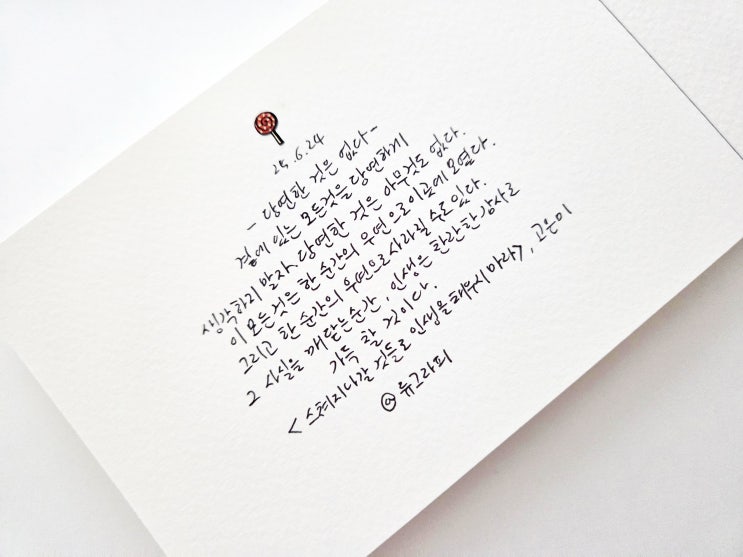 25.6.24
- 당연한 것은 없다 -
곁에 있는 모든것을 당연하게
생각하지 말자. 당연한 것은 아무것도 없다.
이 모든것은 한 순간의 우연으로 이곳에 모였다.
그리고 한 순간의 우연으로 사라질 수도 있다.
그 사실을 깨닫는순간, 인생은 찬란한 감사로
가득 찰 것이다.
<스쳐지나갈 것들로 인생을 채우지 마라>, 고은미
@류그라피